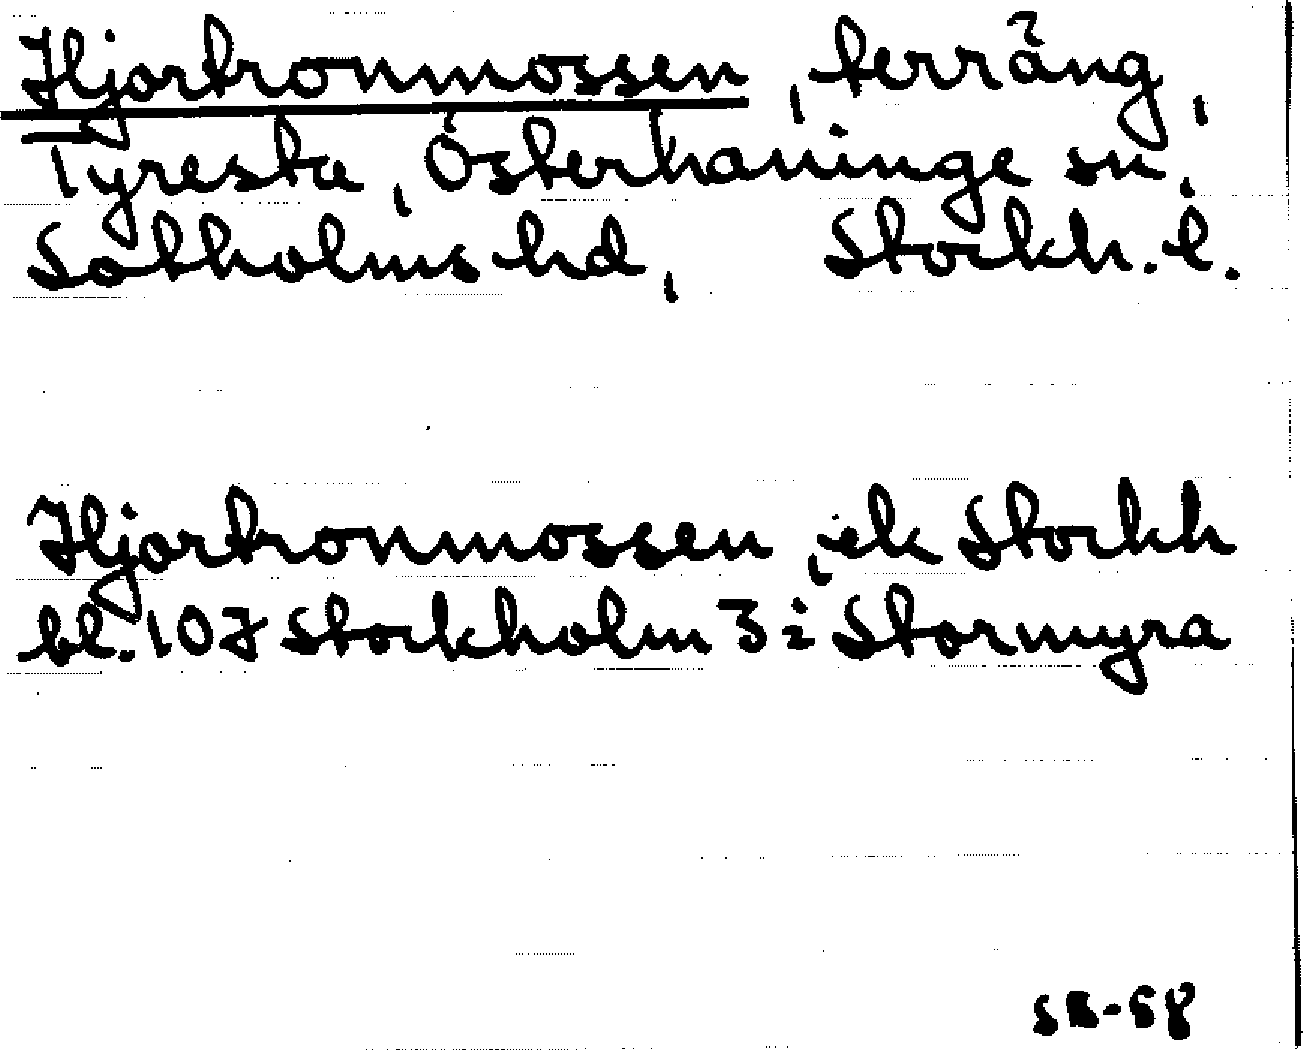 Hjortronmossen, terräng,
Tyresta, Österhaninge sn,
Sotholms hd, Stockh. l.
Hjortronmossen, ek Stockh
bl. 10J Stockholm 3 i Stormyra
SB-58